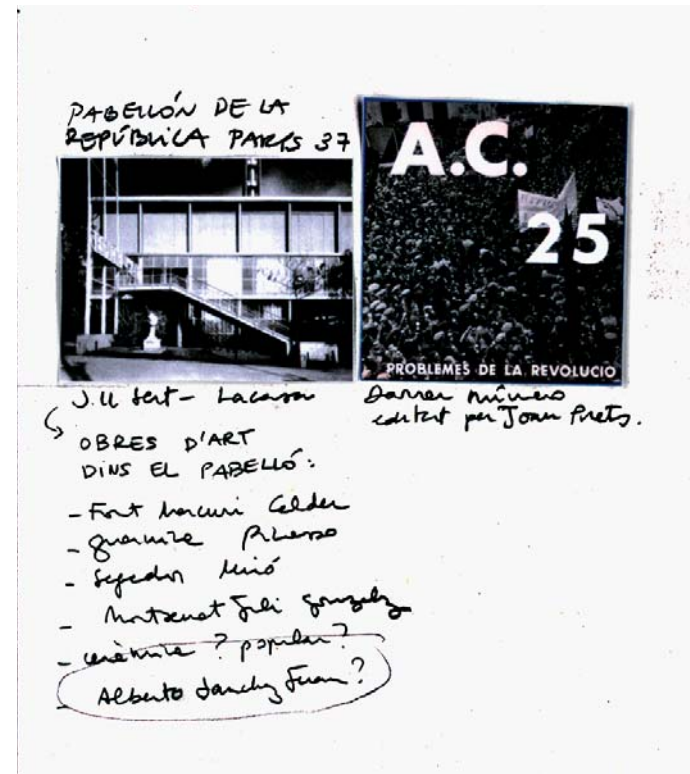 PABELLÓN DE LA
REPÚBLICA PARIS 37
A.C.
25
PROBLEMES DE LA REVOLUCIO
J.LL Sert - Lacasa
Darrer número
editat per Joan Prats.
OBRES D'ART
DINS EL PABELLÓ:
- Font Mercuri Calder
- Guernica Picasso
- Segador Miró
- Montserrat Juli Gonzalez
- ceràmica ? popular?
- Alberto Sanchez Juan?